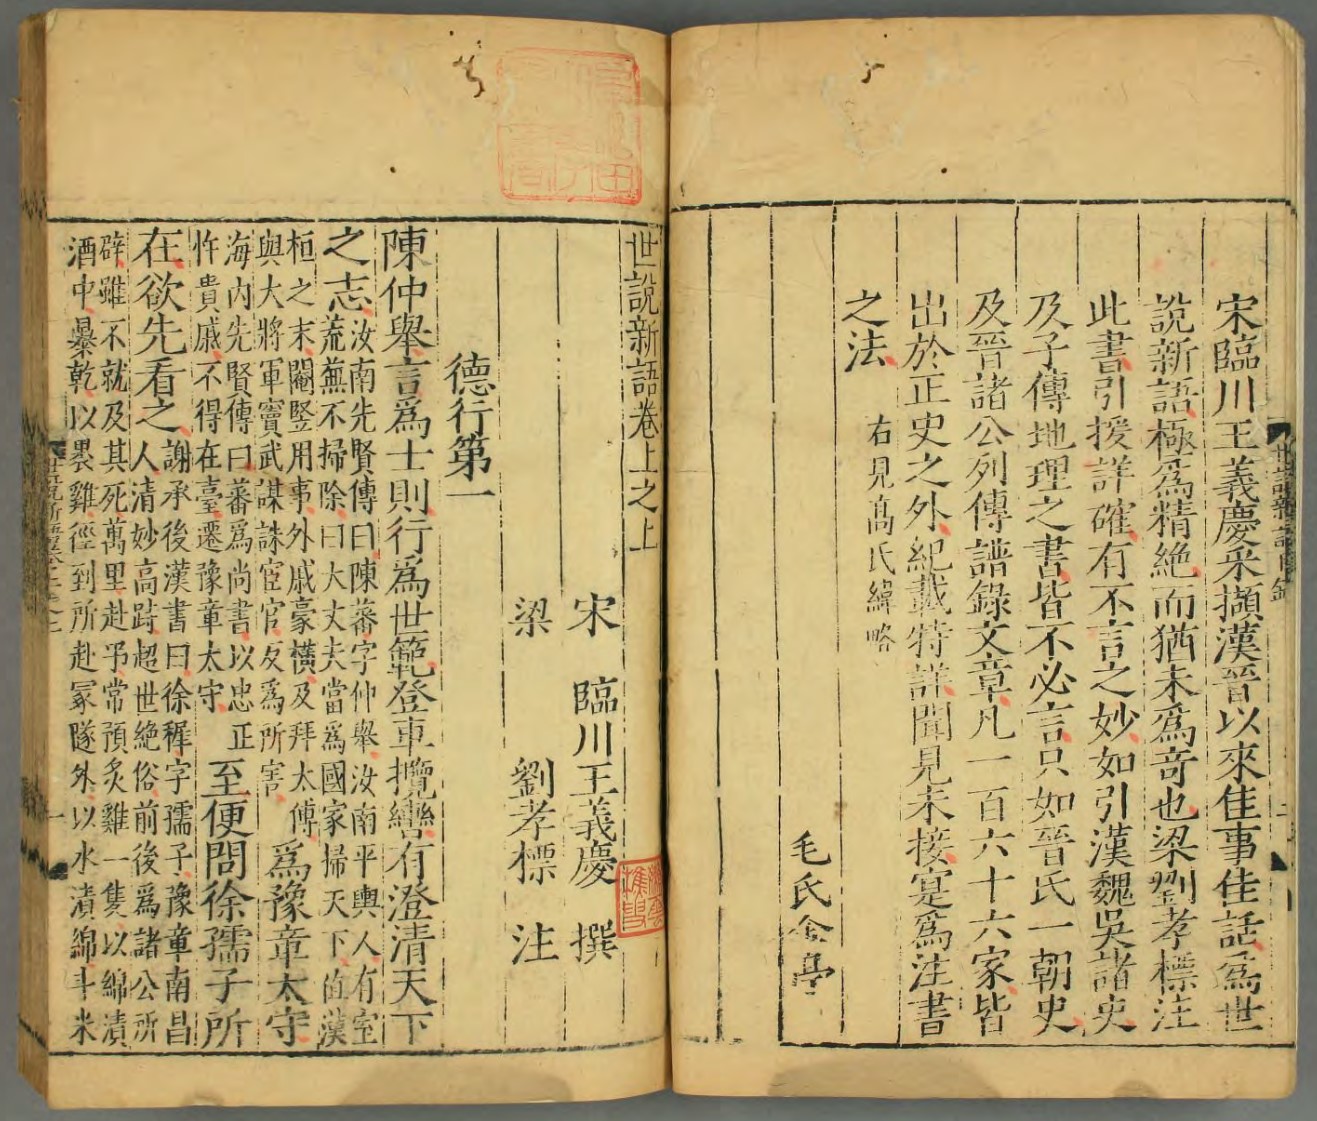 宋臨川王義慶采擷漢晉以來佳事佳話爲世
說新語極爲精絕而猶未爲奇也梁劉孝標注
此書引援詳確有不言之妙如引漢魏吳諸史
及子傳地理之書皆不必言只如晉氏一朝史
及晉諸公列傳譜錄文章凡一百六十六家皆
出於正史之外紀載特詳聞見未接寔爲注書
之法
右見高氏緯略
毛氏金亭
世說新語卷上之上
宋 臨川王義慶 撰
梁 劉孝標 注
德行第一
陳仲舉言爲士則行爲世範登車攬轡有澄清天下
之志
汝南先賢傳曰陳蕃字仲舉汝南平輿人有室
荒蕪不掃除曰大丈夫當爲國家掃天下值漢
桓之末閹豎用事外戚豪橫及拜太傅
與大將軍竇武謀誅宦官反爲所害
爲豫章太守
海內先賢傳曰蕃爲尚書以忠正
忤貴戚不得在臺遷豫章太守
至便問徐孺子所
在欲先看之
謝承後漢書曰徐穉字孺子豫章南昌
人清妙高跱超世絕俗前後爲諸公所
辟雖不就及其死萬里赴弔常預炙雞一隻以綿漬
酒中暴乾以裹雞徑到所赴冢隧外以水漬綿斗米